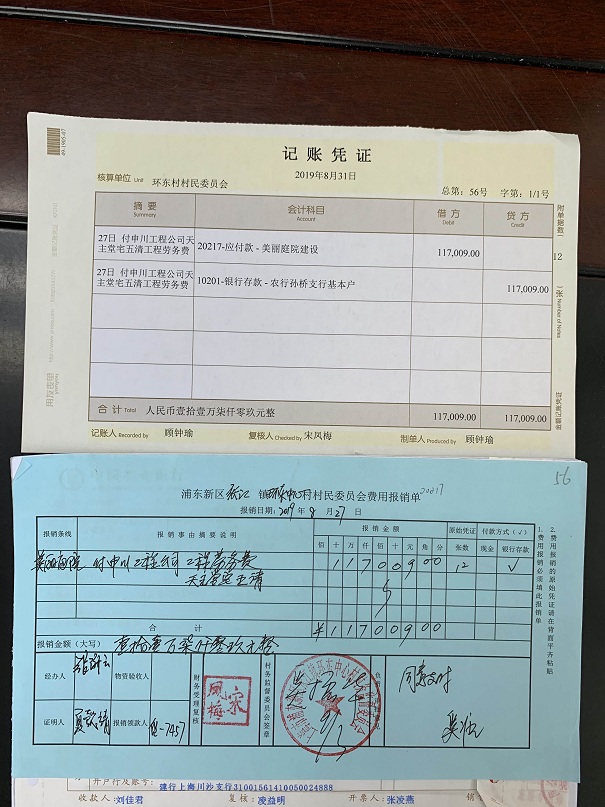 记账凭证
2019年8月31日
核算单位 Unit 环东村村民委员会
总第：56号 字第：1/1号
摘要 Summary 会计科目 Account 借方 Debit 贷方 Credit
27日 付申川工程公司天主堂宅五清工程劳务费 20217-应付款 - 美丽庭院建设 117,009.00
27日 付申川工程公司天主堂宅五清工程劳务费 10201-银行存款 - 农行孙桥支行基本户 117,009.00
合计 Total 人民币壹拾壹万柒仟零玖元整 117,009.00 117,009.00
记账人 Recorded by 顾钟瑜 复核人 Checked by 宋凤梅 制单人 Produced by 顾钟瑜
12
56
浦东新区 张江 镇 村村民委员会费用报销单 20217
报销日期：2019 年 8 月 27 日
报销条线 报销事由摘要说明 报销金额 原始凭证 付款方式（√）
佰 十 万 仟 佰 十 元 角 分 张数 现金 银行存款
美丽庭院 付申川工程公司 工程劳务费 1 1 7 0 0 9 0 0 12 √
天主堂宅五清
合计 ¥ 1 1 7 0 0 9 0 0
报销金额（大写） 壹拾壹万柒仟零玖元整
经办人 物资验收人 财务受理复核 村务监督委员会签章 同意支付
证明人 报销领款人 9/3
1、费用报销必须填此报销单
2、费用报销的原始凭证请在背面平齐粘贴
开户行及账号： 建行上海川沙支行31001561410050024888
收款人：刘佳君 复核：凌益明 开票人：张凌燕